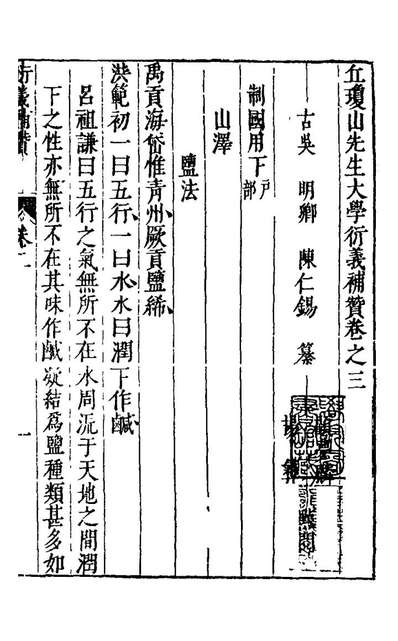 丘瓊山先生大學衍義補贊卷之三
古吳 明卿 陳仁錫 纂
制國用下 戶部
山澤
鹽法
禹貢海岱惟青州厥貢鹽絺
洪範初一曰五行一曰水水曰潤下作鹹
呂祖謙曰五行之氣無所不在水周流于天地之間潤
下之性亦無所不在其味作鹹凝結爲鹽種類甚多如